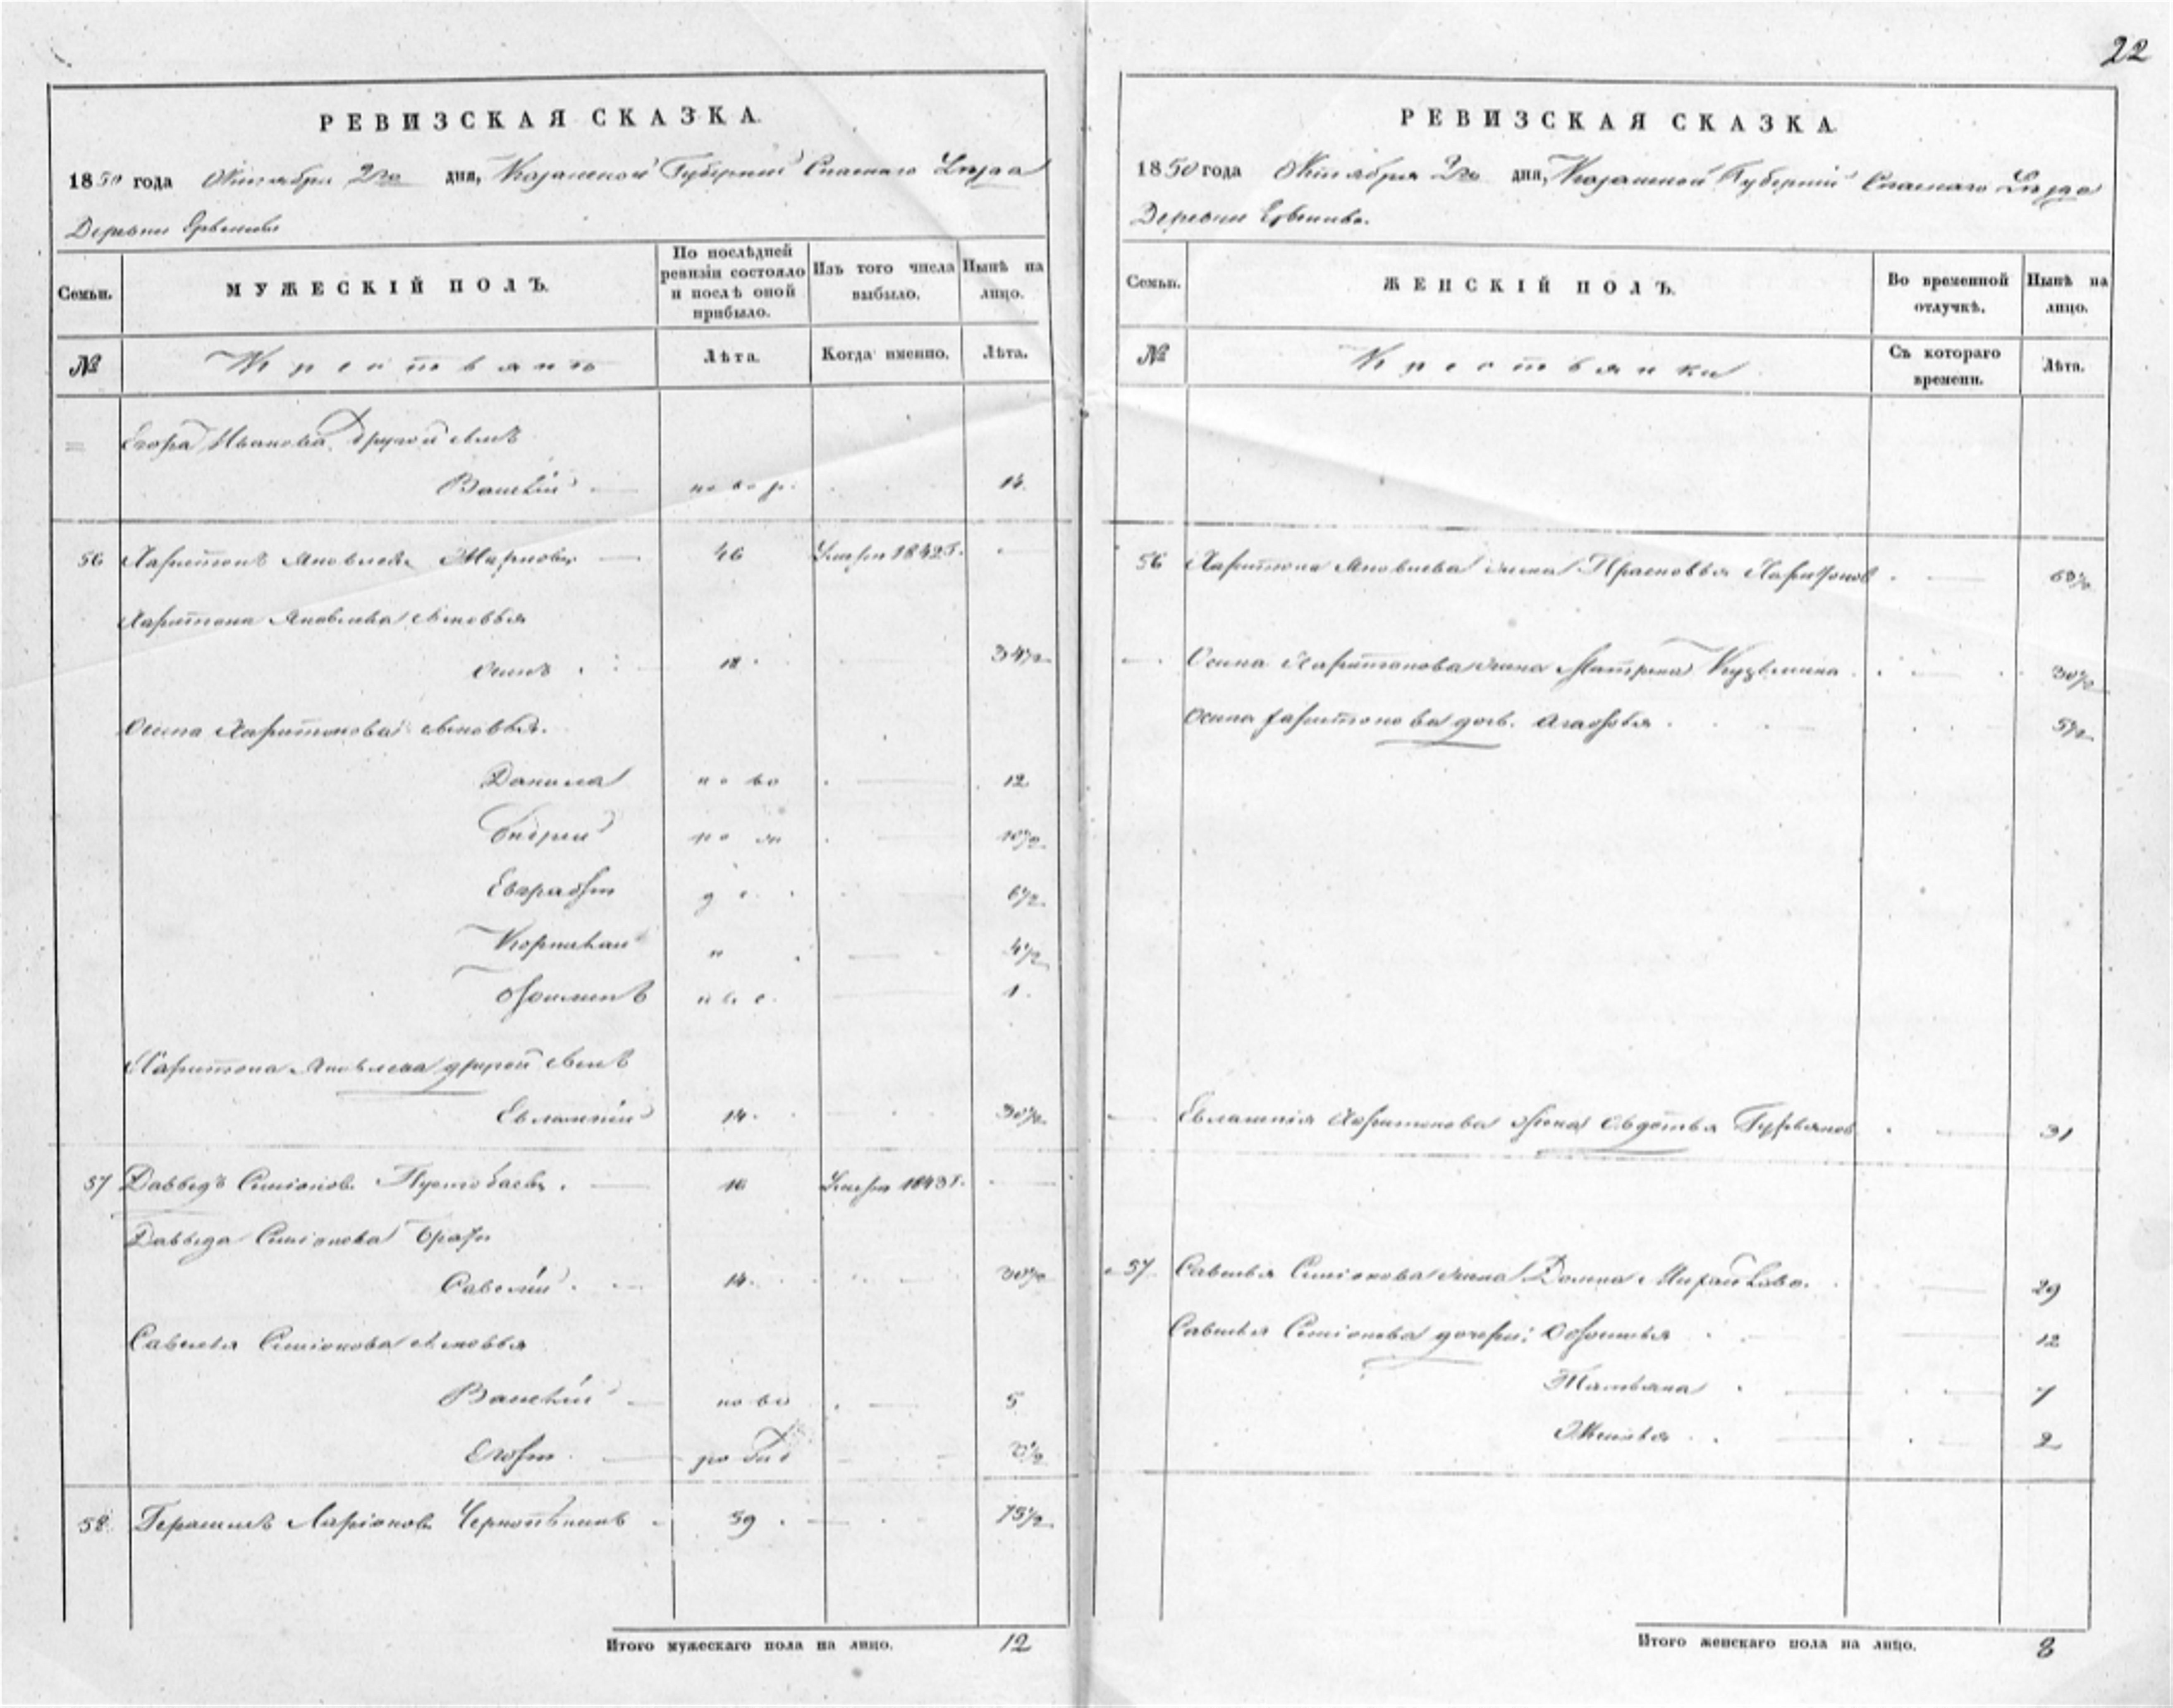 22
РЕВИЗСКАЯ СКАЗКА.
1850 года Октября 2го дня, Казанской Губернии Спаскаго Уѣзда
Деревни
Семьи.
МУЖЕСКІЙ ПОЛЪ.
По послѣдней ревизіи состояло и послѣ оной прибыло.
Изъ того числа выбыло.
Нынѣ на лицо.
№
Крестьяне
Лѣта.
Когда именно.
Лѣта.
Егора Иванова другой сынъ
Василій новор. 14
56 Харитонъ Яковлевъ Марковъ 46 Умеръ 1842 г.
Харитона Яковлева сыновья
Осипъ 18 34½
Осипа Харитонова сыновья.
Данила но во 12
10½
Евграфъ д е 6½
Корнилий 4½
1
Харитона Яковлева другой сынъ
Евлампій 14 30½
57 Давыдъ Симіонов. 16 Умеръ 1843 г.
Давыда Симіонова братъ
Савелій 14 30½
Савелья Симіонова сыновья
Василій ново 5
Егоръ
58 Герасимъ Ларіоновъ 59 75½
Итого мужескаго пола на лицо. 12
РЕВИЗСКАЯ СКАЗКА.
1850 года Октября 2го дня, Казанской Губерніи Спаскаго Уѣзда
Деревни
Семьи.
ЖЕНСКІЙ ПОЛЪ.
Во временной отлучкѣ.
Нынѣ на лицо.
№
Крестьянки
Съ котораго времени.
Лѣта.
56 Харитона Яковлева жена Прасковья
Осипа Харитонова жена Матрена Кузьмина 30½
Осипа Харитонова дочь Агафья 5½
Евлампія Харитонова жена Авдотья 31
57 Савелья Симіонова жена Домна 29
Савелья Симіонова дочери: 12
Татьяна 7
2
Итого женскаго пола на лицо. 8